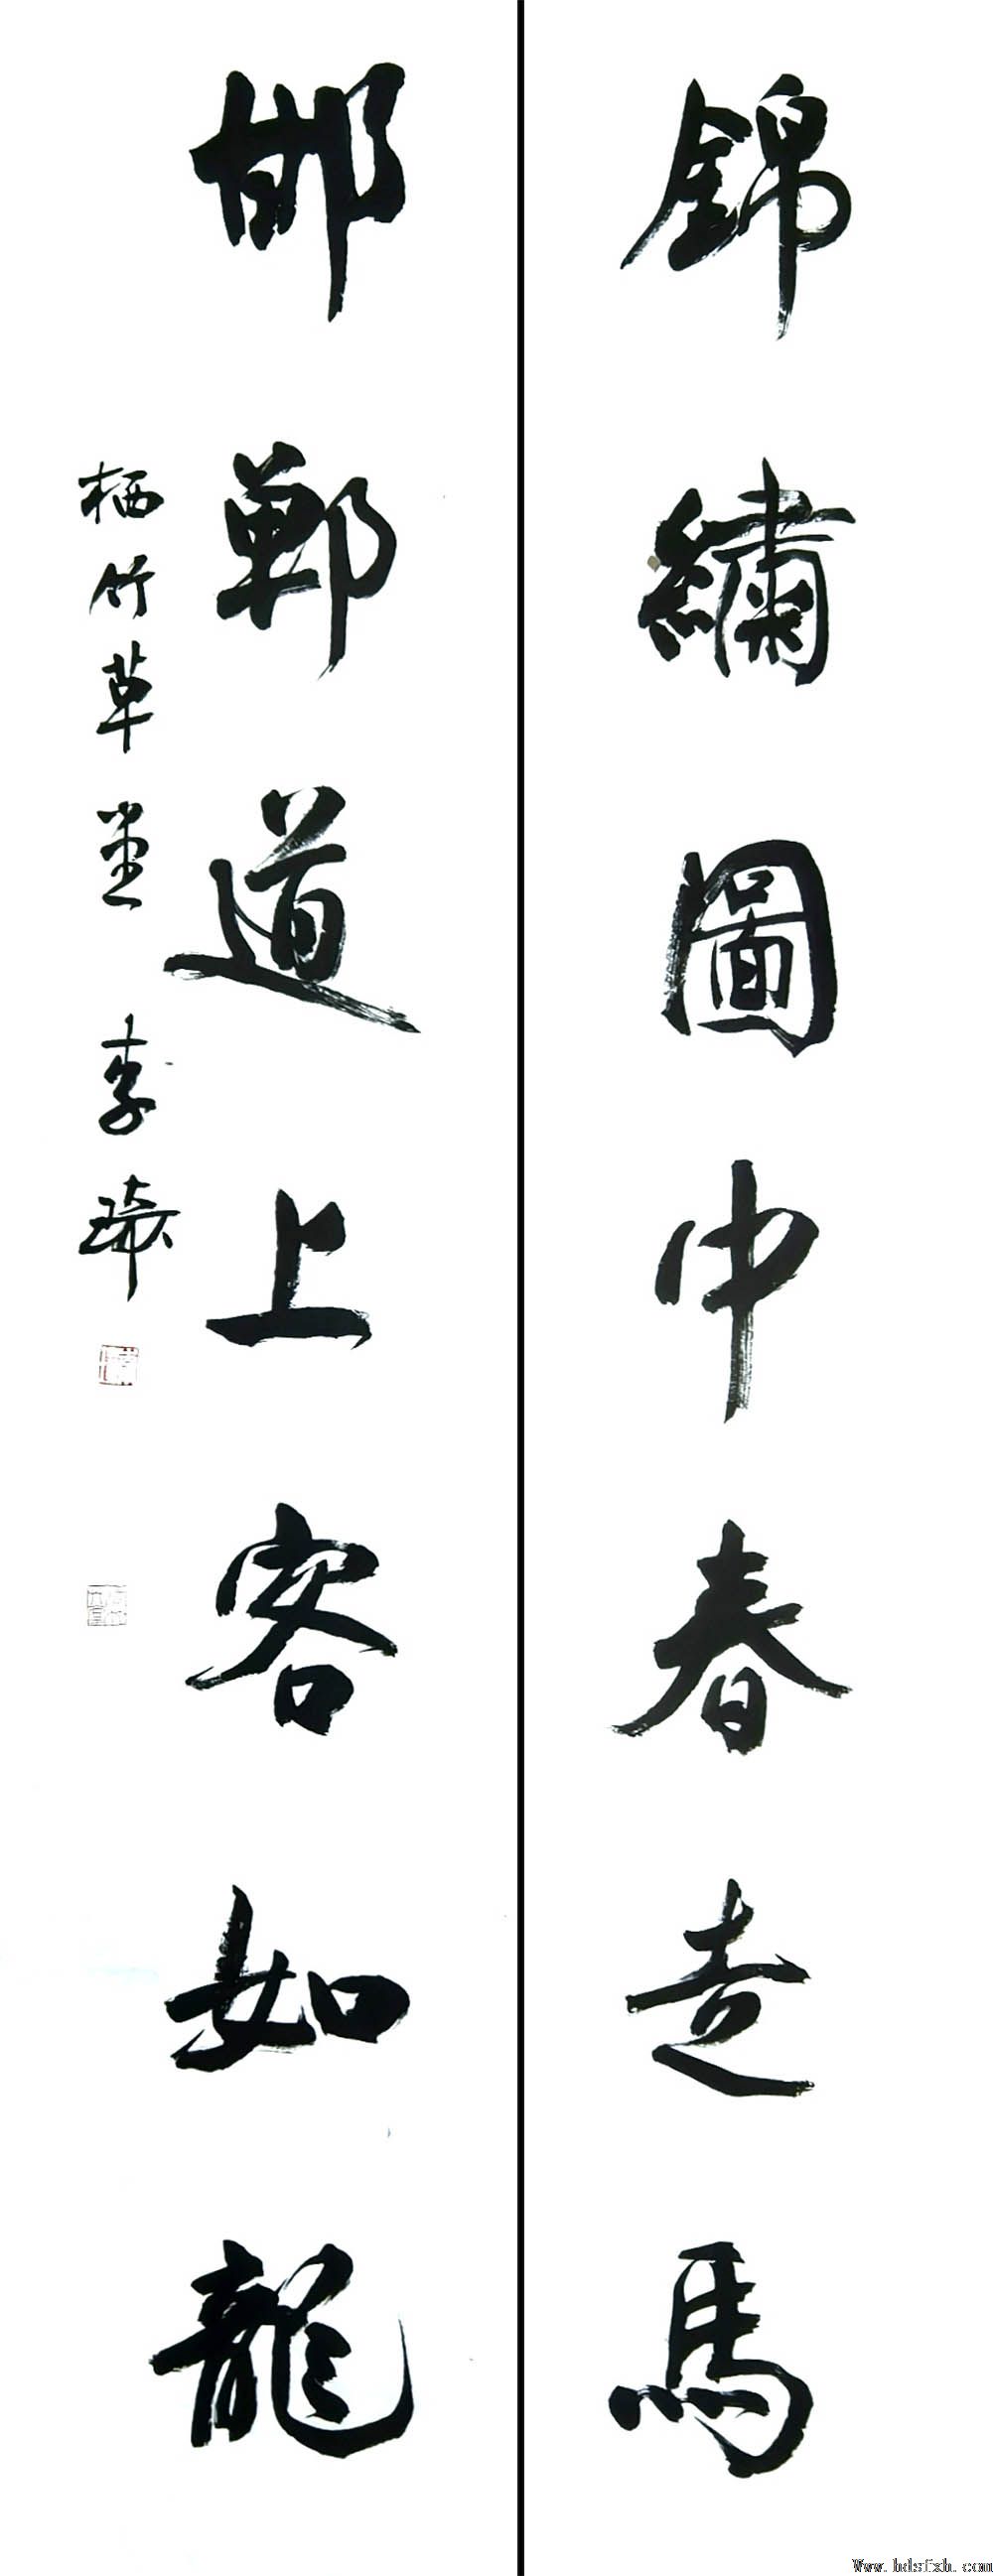 錦繡圖中春走馬
邯鄲道上客如龍
栖竹草堂 李
Www.hdsfxh.com